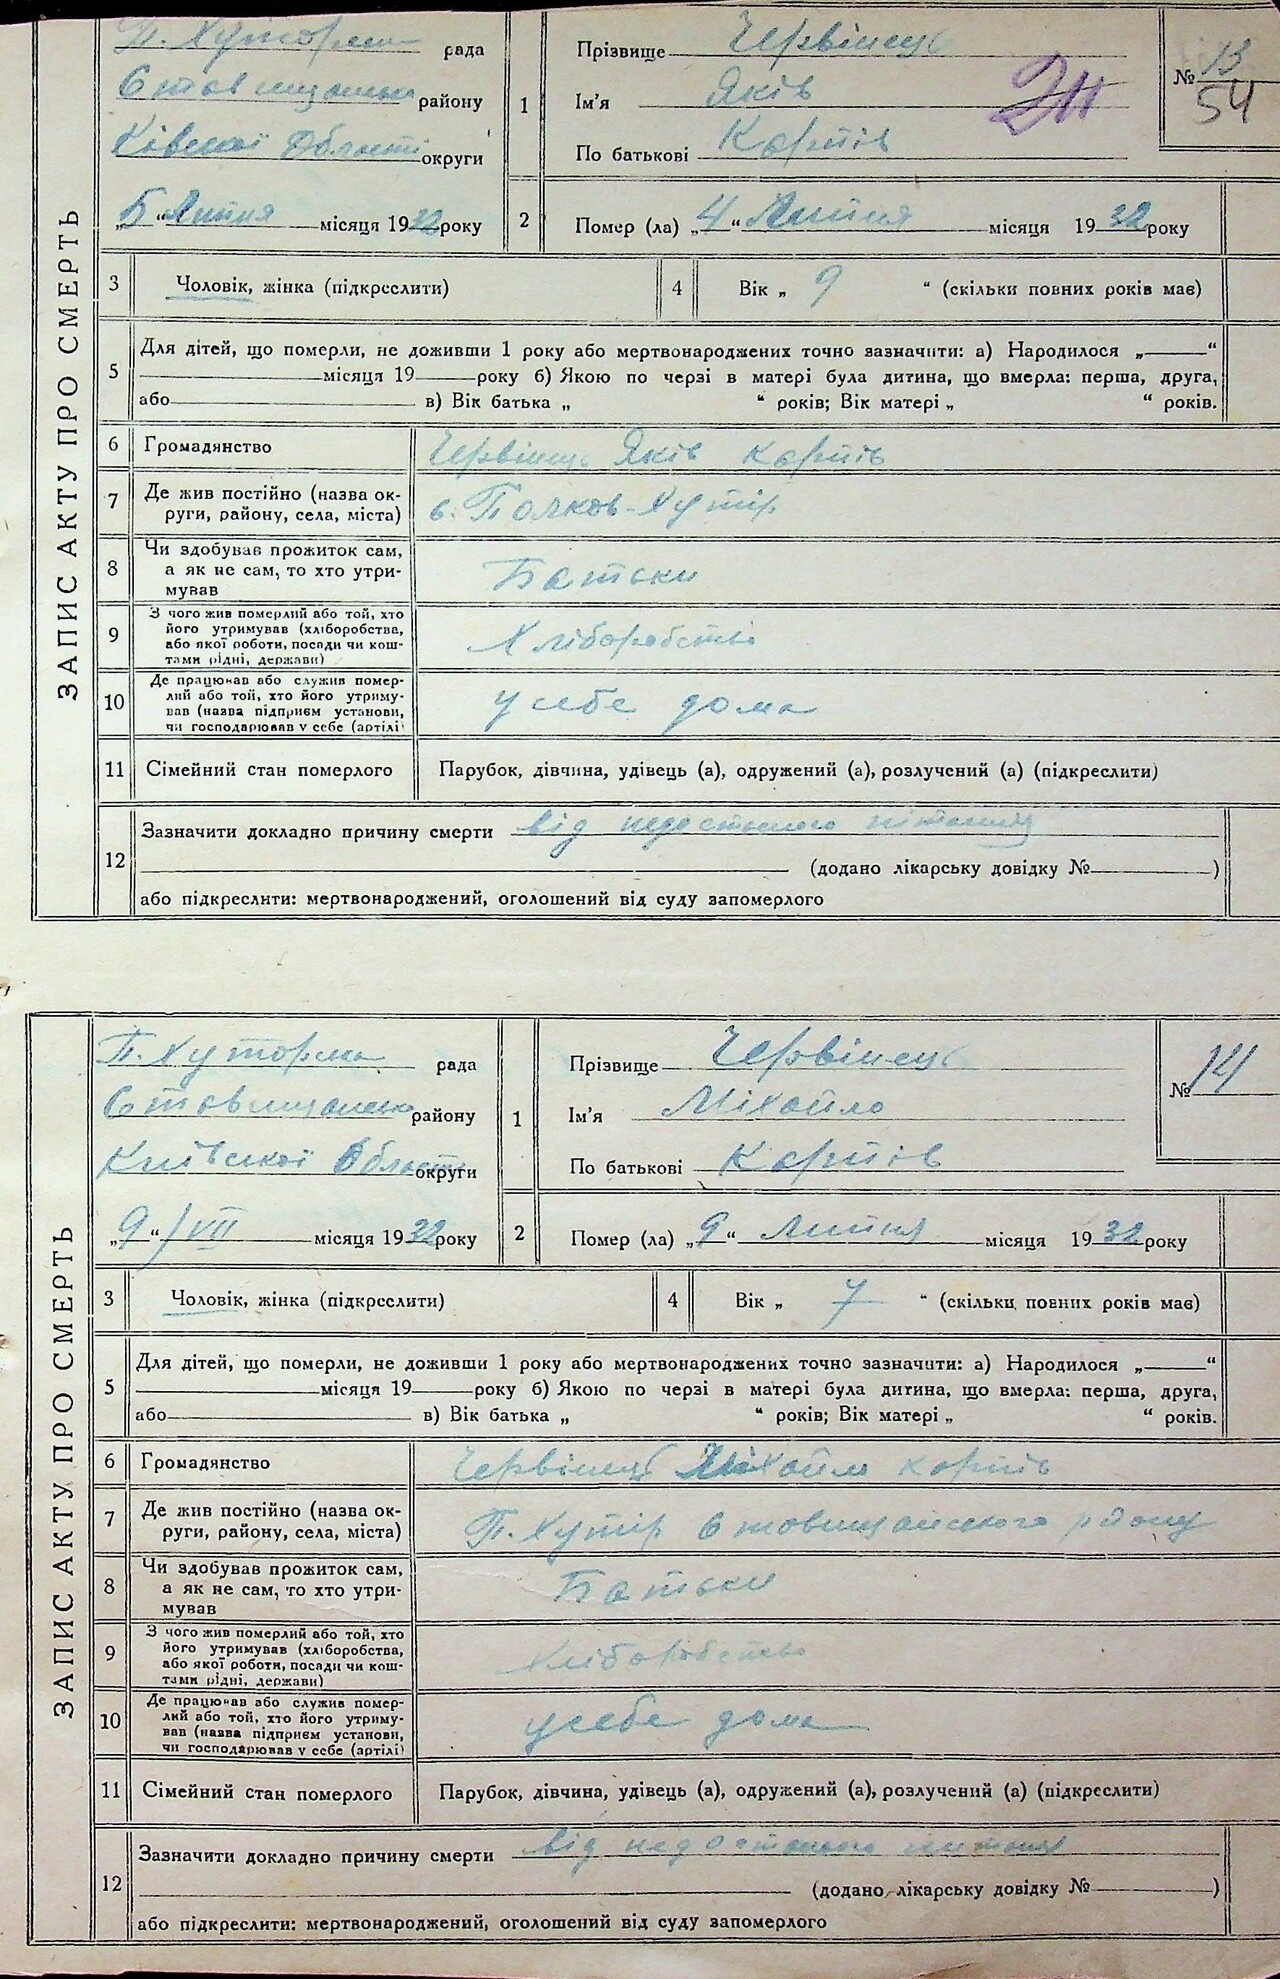 ЗАПИС АКТУ ПРО СМЕРТЬ
П. Хуторська рада
Ставищанськ району
Київської Області округи
„5“ Липня місяця 1932 року
1
Прізвище Червінець
Ім'я Яків
По батькові Карпів
№ 13
54
2
Помер (ла) „4“ Липня місяця 1932 року
3 Чоловік, жінка (підкреслити)
4 Вік „ 9 “ (скільки повних років має)
5
Для дітей, що померли, не доживши 1 року або мертвонароджених точно зазначити: а) Народилося „ “
місяця 19 року б) Якою по черзі в матері була дитина, що вмерла: перша, друга,
або в) Вік батька „ “ років; Вік матері „ “ років.
6 Громадянство Червінець Яків Карпів
7 Де жив постійно (назва ок-
руги, району, села, міста)
с. Полков-Хутір
8 Чи здобував прожиток сам,
а як не сам, то хто утри-
мував
Батьки
9 З чого жив померлий або той, хто
його утримував (хліборобства,
або якої роботи, посади чи кош-
тами рідні, держави)
Хліборобство
10 Де працював або служив помер-
лий або той, хто його утриму-
вав (назва підприєм установи,
чи господарював у себе (артілі)
у себе дома
11 Сімейний стан померлого Парубок, дівчина, удівець (а), одружений (а), розлучений (а) (підкреслити)
12
Зазначити докладно причину смерти від недостаного пітання
(додано лікарську довідку № )
або підкреслити: мертвонароджений, оголошений від суду запомерлого
ЗАПИС АКТУ ПРО СМЕРТЬ
П. Хуторська рада
Ставищанськ району
Київської Області округи
„9“ / VII місяця 1932 року
1
Прізвище Червінець
Ім'я Міхайло
По батькові Карпів
№ 14
2
Помер (ла) „9“ Липня місяця 1932 року
3 Чоловік, жінка (підкреслити)
4 Вік „ 7 “ (скільки повних років має)
5
Для дітей, що померли, не доживши 1 року або мертвонароджених точно зазначити: а) Народилося „ “
місяця 19 року б) Якою по черзі в матері була дитина, що вмерла: перша, друга,
або в) Вік батька „ “ років; Вік матері „ “ років.
6 Громадянство Червінець Міхайло Карпів
7 Де жив постійно (назва ок-
руги, району, села, міста)
П. Хутір Ставищанського району
8 Чи здобував прожиток сам,
а як не сам, то хто утри-
мував
Батьки
9 З чого жив померлий або той, хто
його утримував (хліборобства,
або якої роботи, посади чи кош-
тами рідні, держави)
Хліборобство
10 Де працював або служив помер-
лий або той, хто його утриму-
вав (назва підприєм установи,
чи господарював у себе (артілі)
у себе дома
11 Сімейний стан померлого Парубок, дівчина, удівець (а), одружений (а), розлучений (а) (підкреслити)
12
Зазначити докладно причину смерти від недостаного питания
(додано лікарську довідку № )
або підкреслити: мертвонароджений, оголошений від суду запомерлого